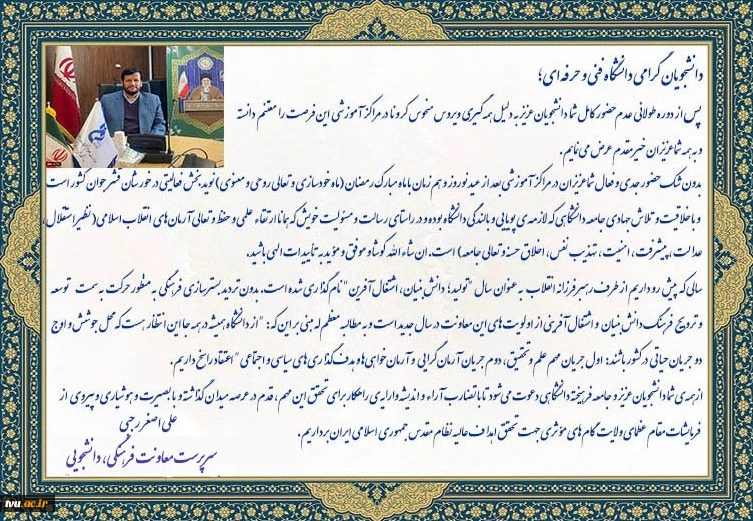 دانشجویان گرامی دانشگاه فنی و حرفه ای؛
پس از دوره طولانی عدم حضور کامل شما دانشجویان عزیز به دلیل همه گیری ویروس منحوس کرونا در مراکز آموزشی این فرصت را مغتنم دانسته
و به همه شما عزیزان خیر مقدم عرض می نمایم.
بدون شک حضور جدی و فعال شما عزیزان در مراکز آموزشی بعد از عید نوروز و هم زمان با ماه مبارک رمضان (ماه خودسازی و تعالی روحی و معنوی) نوید بخش فعالیتی در خور شان قشر جوان کشور است
و با خلاقیت و تلاش جهادی جامعه دانشگاهی که لازمه ی پویایی و بالندگی دانشگاه بوده و در راستای رسالت و مسئولیت خویش که همانا ارتقاء علمی و حفظ و تعالی آرمان های انقلاب اسلامی (نظیر استقلال،
عدالت، پیشرفت، امنیت، تهذیب نفس، اخلاق حسنه و تعالی جامعه) است. ان شاء الله کوشا و موفق و موید به تاییدات الهی باشید.
سالی که پیش رو داریم از طرف رهبر فرزانه انقلاب به عنوان سال "تولید؛ دانش بنیان، اشتغال آفرین" نام گذاری شده است. بدون تردید بسترسازی فرهنگی به منظور حرکت به سمت توسعه
و ترویج فرهنگ دانش بنیان و اشتغال آفرینی از اولویت های این معاونت در سال جدید است و به مطالبه معظم له مبنی بر این که: "از دانشگاه همیشه در همه جا این انتظار هست که محل جوشش و اوج
دو جریان حیاتی در کشور باشند: اول جریان مهم علم و تحقیق، دوم جریان آرمان گرایی و آرمان خواهی ها و هدف گذاری های سیاسی و اجتماعی" اعتقاد راسخ داریم.
از همه ی شما دانشجویان عزیز و جامعه فرهیخته دانشگاهی دعوت می شود تا با تضارب آراء و اندیشه و ارایه ی راهکار برای تحقق این مهم، قدم در عرصه میدان گذاشته و با بصیرت و هوشیاری و پیروی از
فرمایشات مقام عظمای ولایت گام های مؤثری جهت تحقق اهداف عالیه نظام مقدس جمهوری اسلامی ایران برداریم.
علی اصغر رجبی
سرپرست معاونت فرهنگی، دانشجویی
tvu.ac.ir